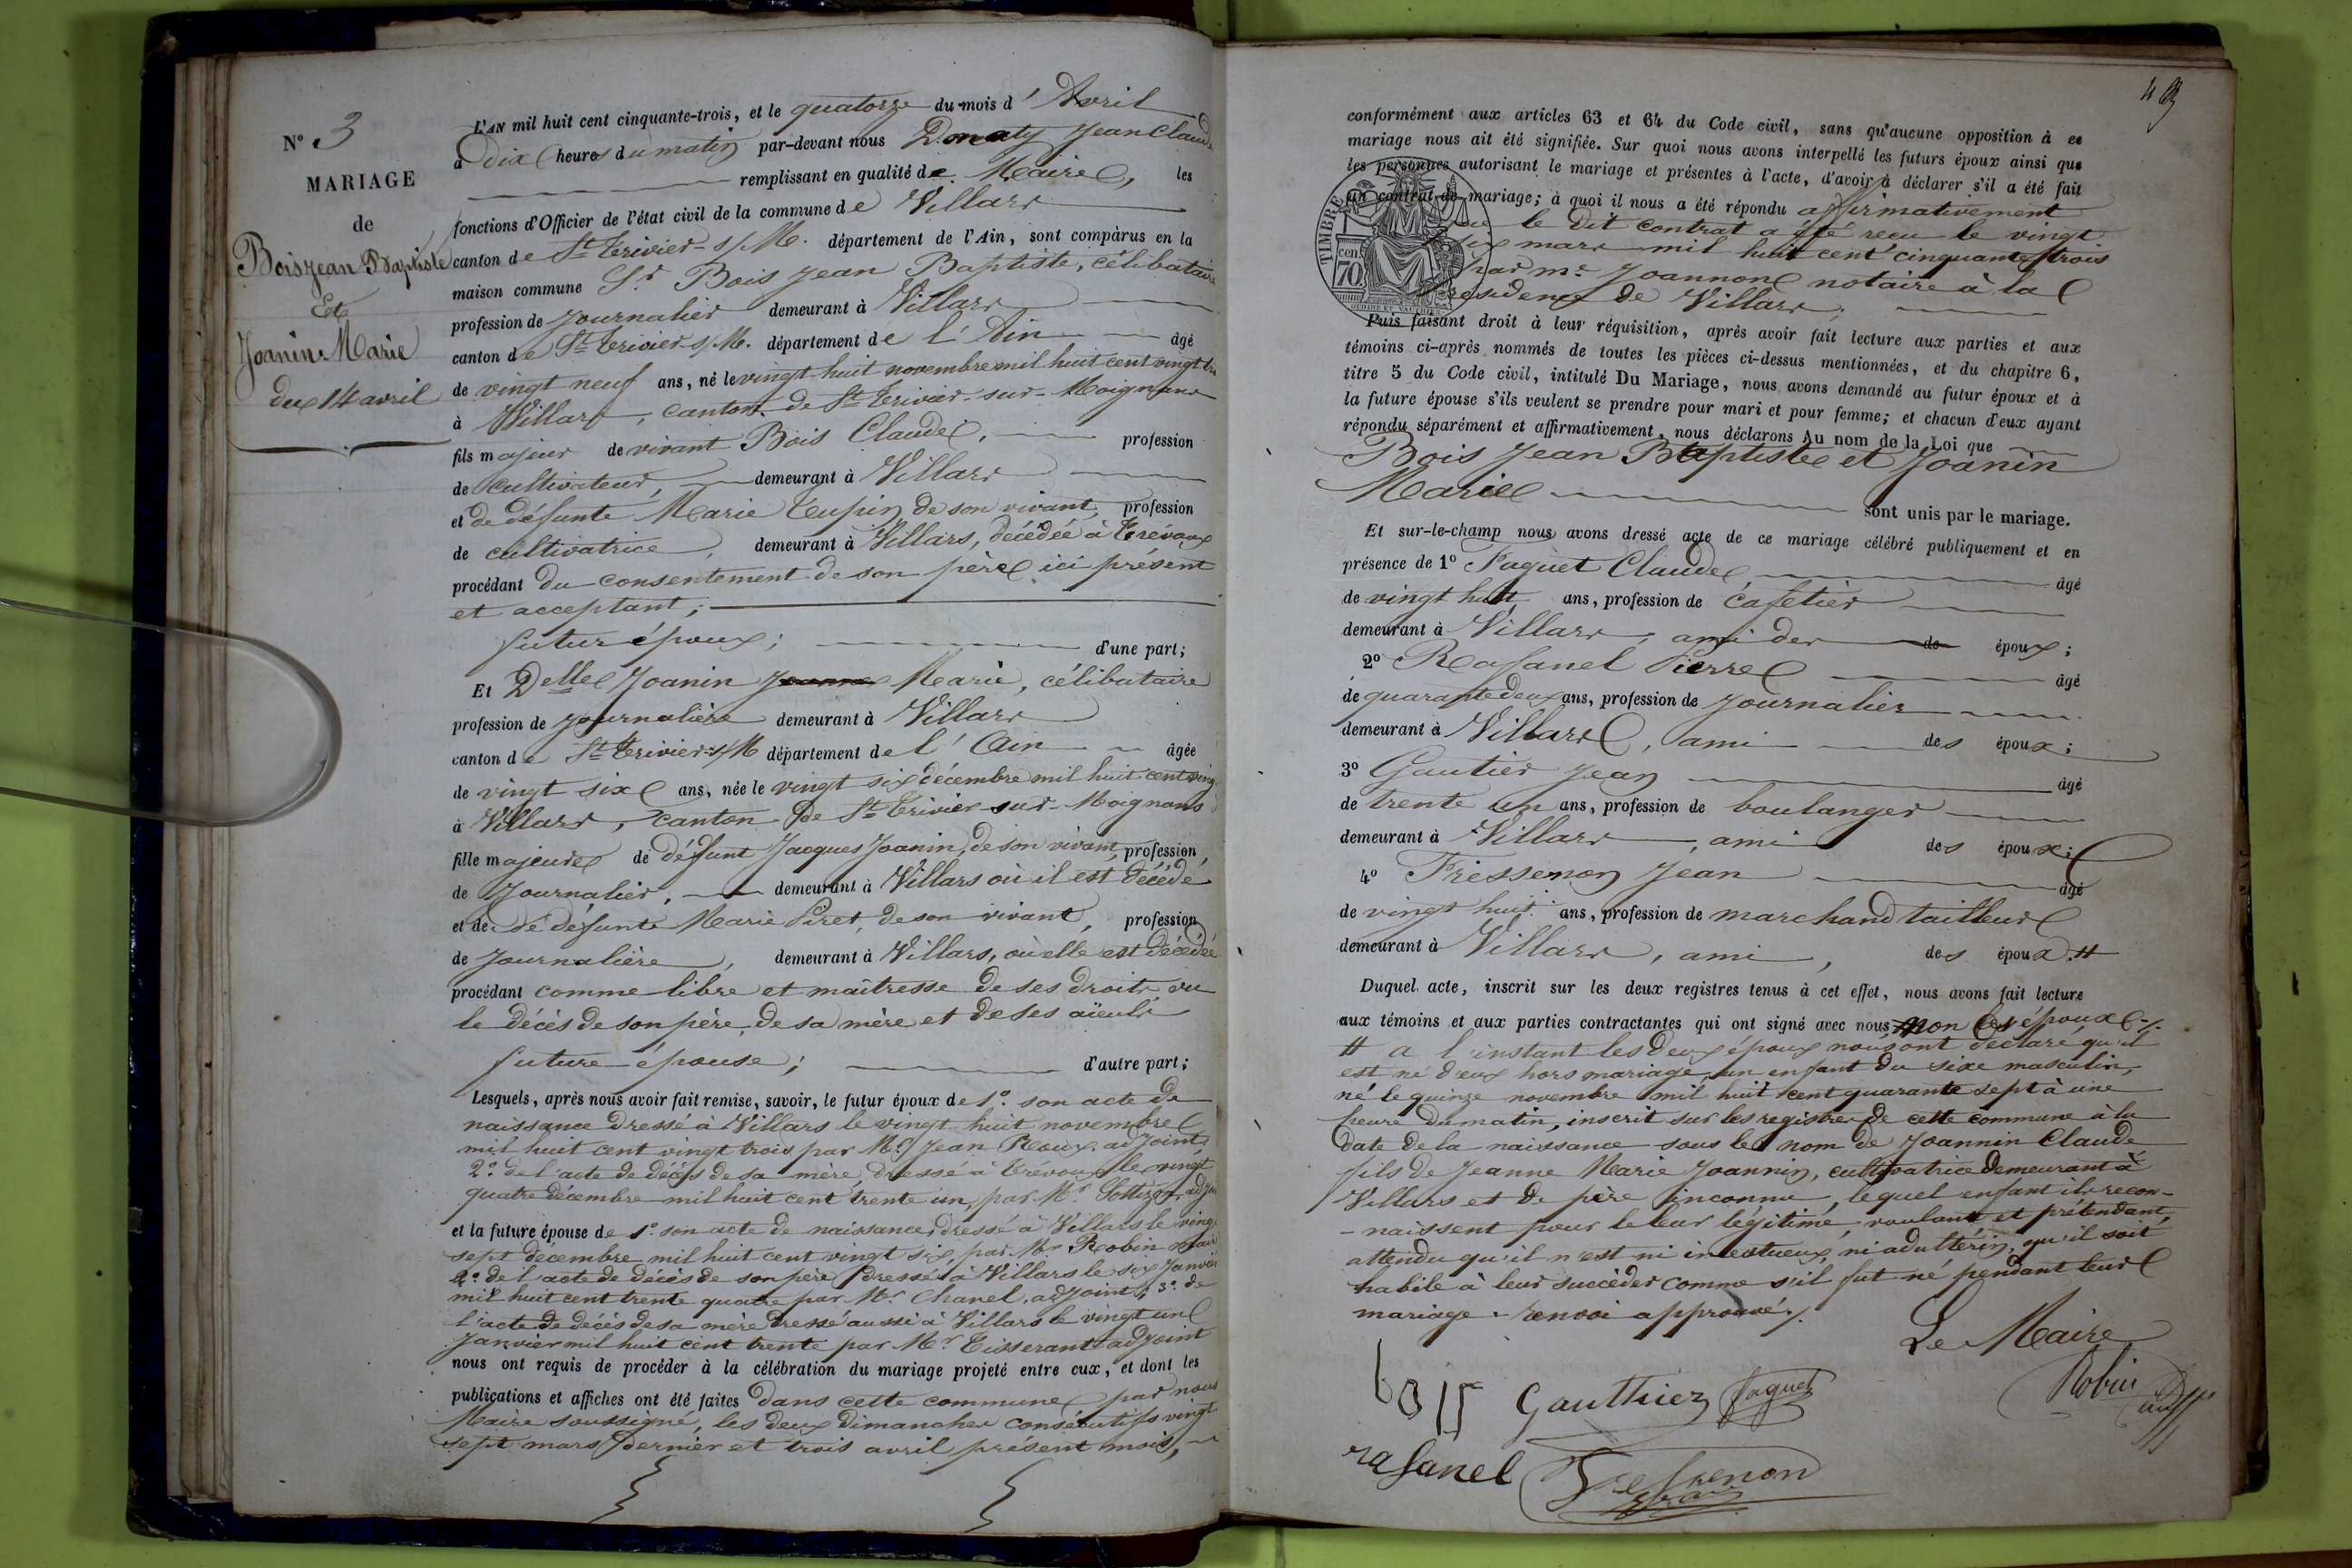 N° 3
MARIAGE
de
Bois Jean Baptiste
Et
Joanin Marie
du 14 avril
L'AN mil huit cent cinquante-trois, et le quatorze du mois d'Avril
à Dix heures du matin par-devant nous Donaty Jean Claude
remplissant en qualité de Maire, les
fonctions d'Officier de l'état civil de la commune de Villars
canton de St Trivier-s/M. département de l'Ain, sont comparus en la
maison commune Sr Bois Jean Baptiste, célibataire
profession de journalier demeurant à Villars
canton de St Trivier-s/M. département de l'Ain âgé
de vingt neuf ans, né le vingt huit novembre mil huit cent vingt
à Villars, canton de St Trivier-sur-Moignans
fils majeur de vivant Bois Claude, profession
de cultivateur, demeurant à Villars
et de défunte Marie Tupin de son vivant, profession
de cultivatrice, demeurant à Villars, décédée à Trévoux
procédant du consentement de son père ici présent
et acceptant;
futur époux; d'une part;
Et Delle Joanin Jeanne Marie, célibataire
profession de journalière demeurant à Villars
canton de St Trivier-s/M département de l'Ain âgée
de vingt six ans, née le vingt six décembre mil huit cent vingt
à Villars, canton de St Trivier-sur-Moignans
fille majeure de défunt Jacques Joanin, de son vivant, profession,
de journalier, demeurant à Villars où il est décédé
et de de défunte Marie Piret, de son vivant, profession
de journalière, demeurant à Villars, où elle est décédée
procédant comme libre et maîtresse de ses droits vu
le décès de son père, de sa mère et de ses aïeuls
future épouse; d'autre part;
Lesquels, après nous avoir fait remise, savoir, le futur époux de 1° son acte de
naissance dressé à Villars le vingt huit novembre
mil huit cent vingt trois par Mr Jean Roux adjoint,
2° de l'acte de décès de sa mère, dressé à Trévoux le vingt
quatre décembre mil huit cent trente un, par Mr
et la future épouse de 1° son acte de naissance, dressé à Villars le vingt
sept décembre mil huit cent vingt six, par Mr Robin maire
2° de l'acte de décès de son père dressé à Villars le six janvier
mil huit cent trente quatre par Mr Chanel, adjoint; 3° de
l'acte de décès de sa mère dressé aussi à Villars le vingt un
Janvier mil huit cent trente par Mr Tisserant adjoint
nous ont requis de procéder à la célébration du mariage projeté entre eux, et dont les
publications et affiches ont été faites dans cette commune par nous
Maire soussigné, les deux dimanches consécutifs vingt
sept mars dernier et trois avril présent mois,
conformément aux articles 63 et 64 du Code civil, sans qu'aucune opposition à ce
mariage nous ait été signifiée. Sur quoi nous avons interpellé les futurs époux ainsi que
les personnes autorisant le mariage et présentes à l'acte, d'avoir à déclarer s'il a été fait
un contrat de mariage; à quoi il nous a été répondu affirmativement
que le dit contrat a été reçu le vingt
six mars mil huit cent cinquante trois
par me Joannon notaire à la
résidence de Villars.
TIMBRE
cen.
70
Puis faisant droit à leur réquisition, après avoir fait lecture aux parties et aux
témoins ci-après nommés de toutes les pièces ci-dessus mentionnées, et du chapitre 6,
titre 5 du Code civil, intitulé Du Mariage, nous avons demandé au futur époux et à
la future épouse s'ils veulent se prendre pour mari et pour femme; et chacun d'eux ayant
répondu séparément et affirmativement, nous déclarons Au nom de la Loi que
Bois Jean Baptiste et Joanin
Marie
sont unis par le mariage.
Et sur-le-champ nous avons dressé acte de ce mariage célébré publiquement et en
présence de 1° Faguet Claude, âgé
de vingt huit ans, profession de cafetier
demeurant à Villars, ami des de époux;
2° Rafanel Pierre âgé
de quarante deux ans, profession de journalier
demeurant à Villars, ami des époux;
3° Gautier Jean âgé
de trente un ans, profession de boulanger
demeurant à Villars, ami des époux;
4° Fressenon Jean âgé
de vingt huit ans, profession de marchand tailleur
demeurant à Villars, ami, des époux. #
Duquel acte, inscrit sur les deux registres tenus à cet effet, nous avons fait lecture
aux témoins et aux parties contractantes qui ont signé avec nous, non les époux
# a l'instant les deux époux nous ont déclaré qu'il
est né d'eux hors mariage, un enfant du sixe masculin,
né le quinze novembre mil huit cent quarante sept à une
heure du matin, inscrit sur les registres de cette commune à la
date de la naissance sous le nom de Joannin Claude
fils de Jeanne Marie Joannin, cultivatrice demeurant à
Villars et de père inconnu, lequel enfant ils recon-
-naissent pour le leur légitime, voulant et prétendant,
attendu qu'il n'est ni incestueux, ni adultérin, qu'il soit
habile à leur succéder comme s'il fut né pendant leur
mariage. renvoi approuvé.
Le Maire
bois Gauthier faguet Robin
rafanel Fressenon